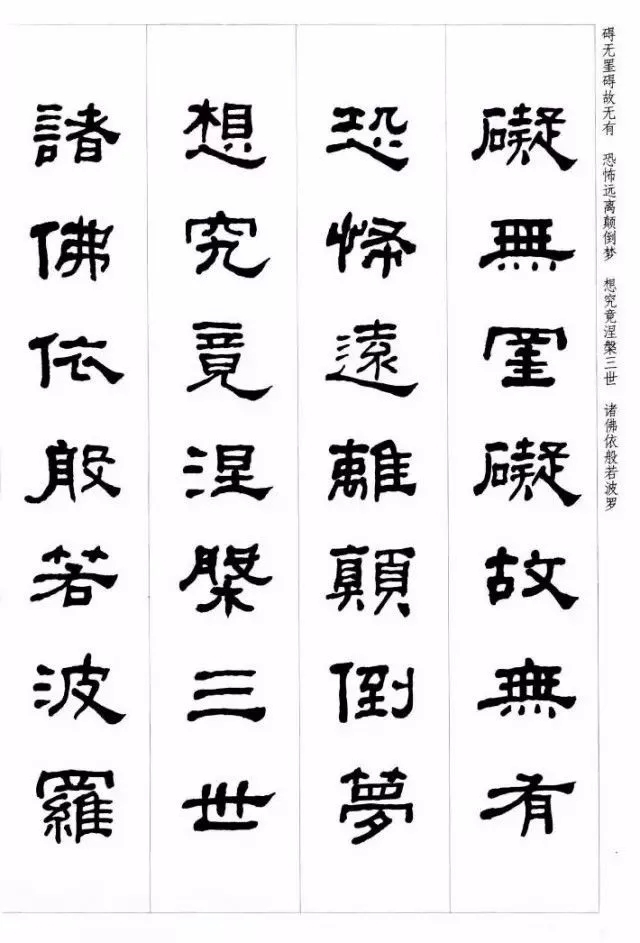 碍无罣碍故无有 恐怖远离颠倒梦 想究竟涅槃三世 诸佛依般若波罗
礙無罣礙故無有
恐怖遠離顛倒夢
想究竟涅槃三世
諸佛依般若波羅